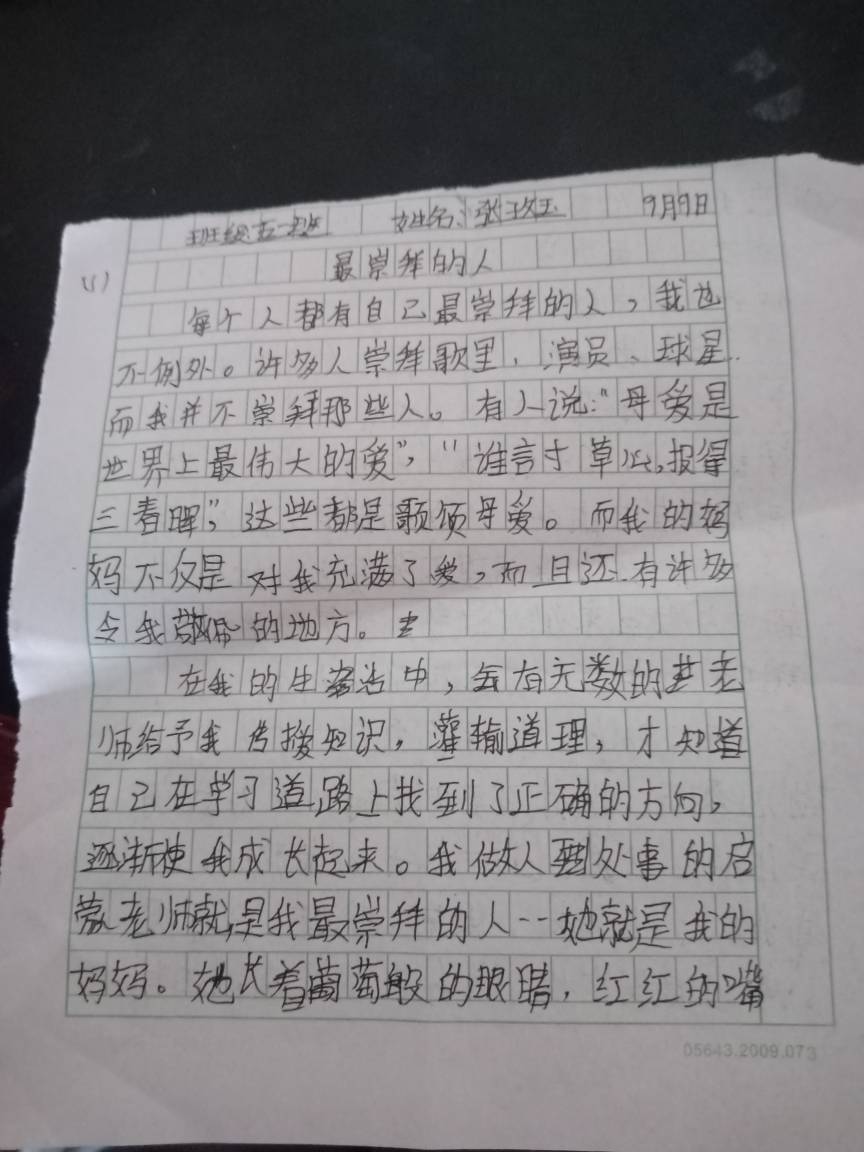 班级五一班 姓名:张玫玉 9月9日
(1) 最崇拜的人
每个人都有自己最崇拜的人，我也
不例外。许多人崇拜歌星、演员、球星.
而我并不崇拜那些人。有人说:“母爱是
世界上最伟大的爱”，“谁言寸草心,报得
三春晖”，这些都是歌颂母爱。而我的妈
妈不仅是对我充满了爱,而且还有许多
令我敬佩的地方。
在我的生活中，会有无数的老
师给予我传授知识，灌输道理，才知道
自己在学习道路上找到了正确的方向,
逐渐使我成长起来。我做人到处事的启
蒙老师就是我最崇拜的人--她就是我的
妈妈。她长着葡萄般的眼睛，红红的嘴
05643.2009.073